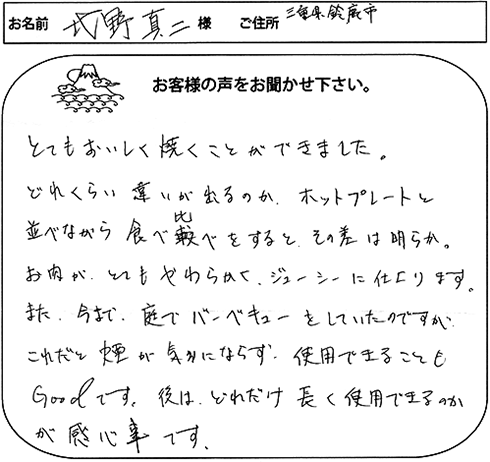 お名前 武野真二 様 ご住所 三重県鈴鹿市
お客様の声をお聞かせ下さい。
とてもおいしく焼くことができました。
どれくらい違いが出るのか、ホットプレートと
並べながら食べ比べをすると、その差は明らか。
お肉が、とてもやわらかく、ジューシーに仕上ります。
また、今まで、庭でバーベキューをしていたのですが、
これだと煙が気にならず、使用できることも
Goodです。後は、どれだけ長く使用できるのか
が感心事です。